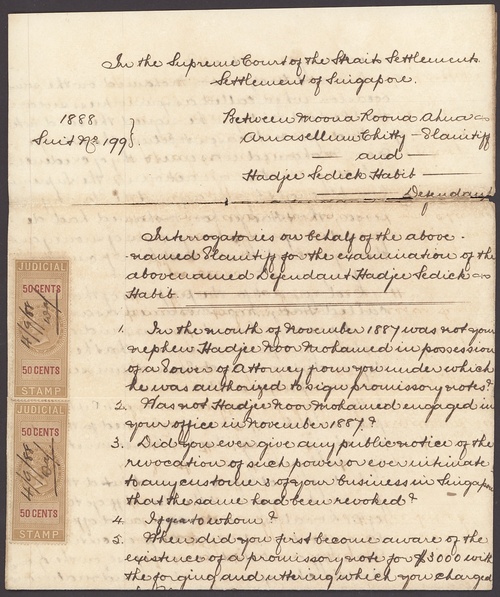 In the Supreme Court of the Straits Settlements
Settlement of Singapore.
1888
Suit No 199
Between Moona Roona Ahna
Arnasellum Chitty - Plaintiff
and
Hadjee Sedick Habib
Defendant
Interrogatories on behalf of the above-
named Plaintiff for the examination of the
abovenamed Defendant Hadjee Sedick
Habib
1. In the month of November 1887 was not your
nephew Hadjee Noor Mohamed in possession
of a Power of Attorney from you under which
he was authorized to sign promissory notes?
2. Was not Hadjee Noor Mohamed engaged in
your office in November 1887?
3. Did you ever give any public notice of the
revocation of such power or ever intimate
to any customers of your business in Singapore
that the same had been revoked?
4. If yea to whom?
5. When did you first become aware of the
existence of a promissory note for $3000 with
the forging and uttering which you charged
JUDICIAL
50 CENTS
4/9/88
50 CENTS
STAMP
JUDICIAL
50 CENTS
4/9/88
50 CENTS
STAMP